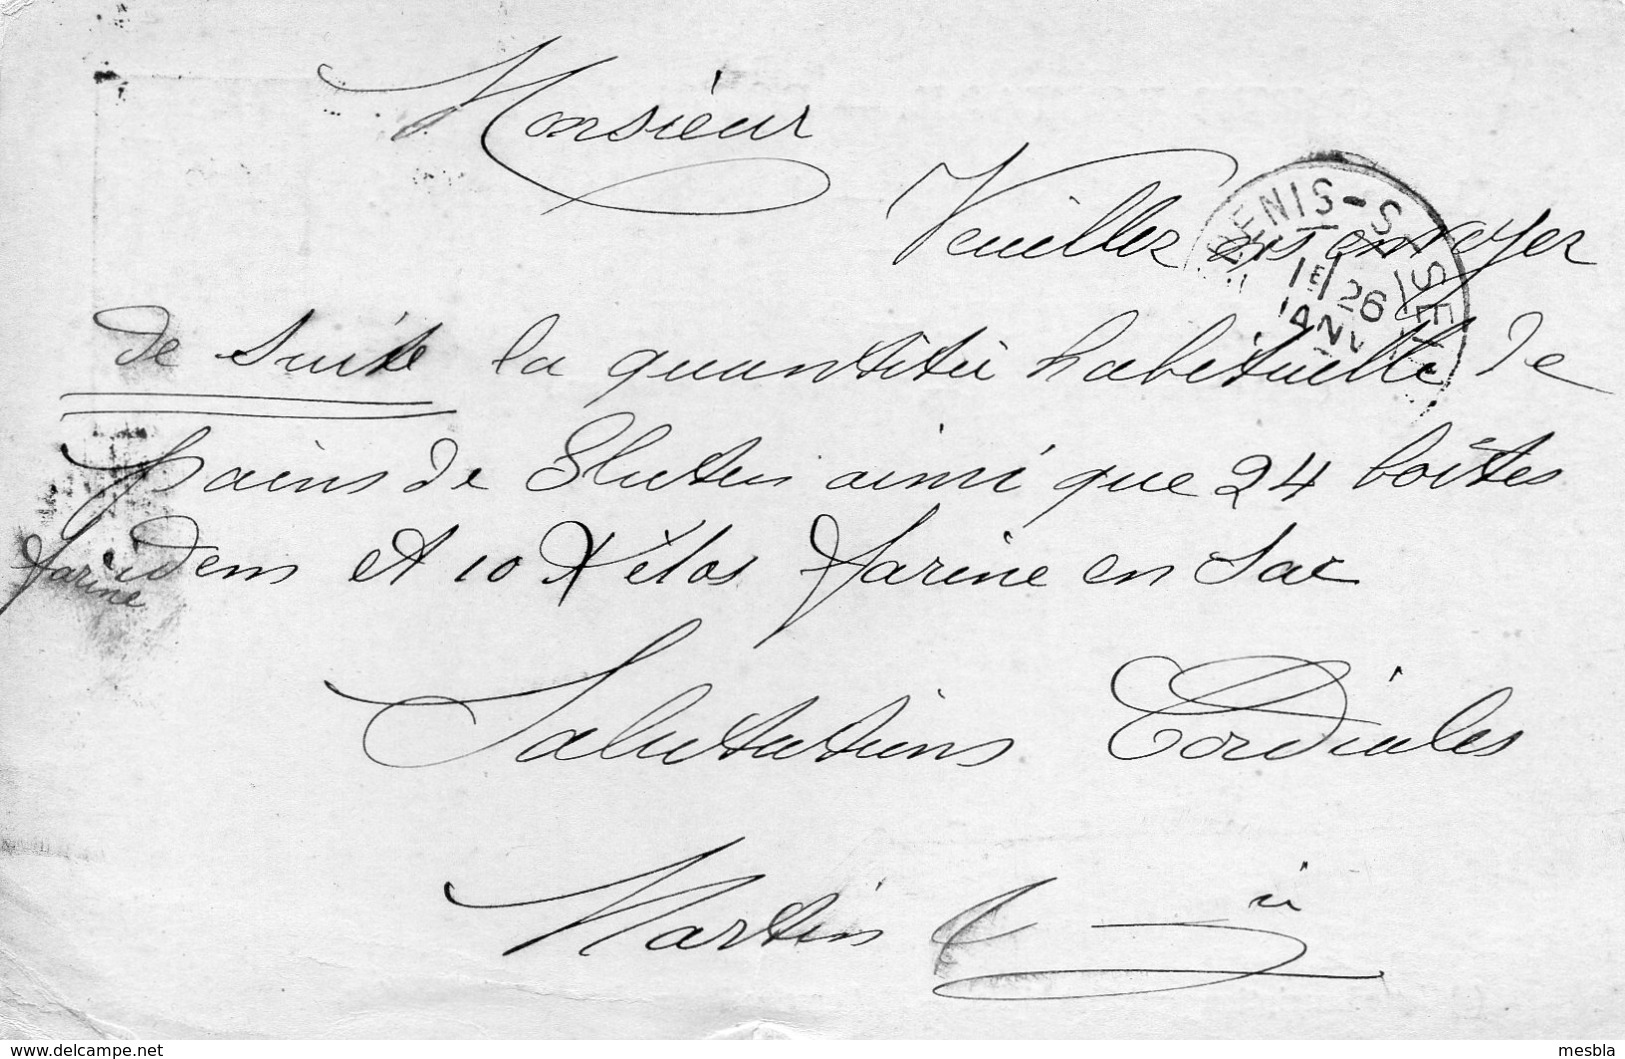 Monsieur
Veuillez ns envoyer
de suite la quantité habituelle de
pains de Gluten ainsi que 24 boîtes
farine idem et 10 Kilos farine en sac
Salutations Cordiales
Martin
DENIS-S-SEINE
1E 26
JANV
www.delcampe.net
mesbla